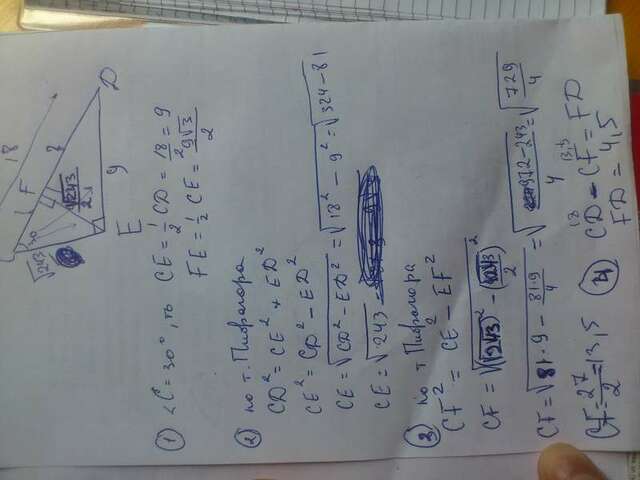 18
D
F
8
1
30
√243
√243
2
9
E
① <C=30°, то CE = 1/2 CD = 18/2 = 9
FE = 1/2 CE = 9√3/2
② по т. Пифагора
CD² = CE² + ED²
CE² = CD² - ED²
CE = √CD² - ED² = √18² - 9² = √324-81
CE = √243
③ по т Пифагора
CF² = CE² - EF²
CF = √(√243)² - (√243/2)²
CF = √81·9 - 81·9/4 = √972-243/4 = √729/4
CF = 27/2 = 13,5
④ CD - CF = FD
18
13,5
FD = 4,5